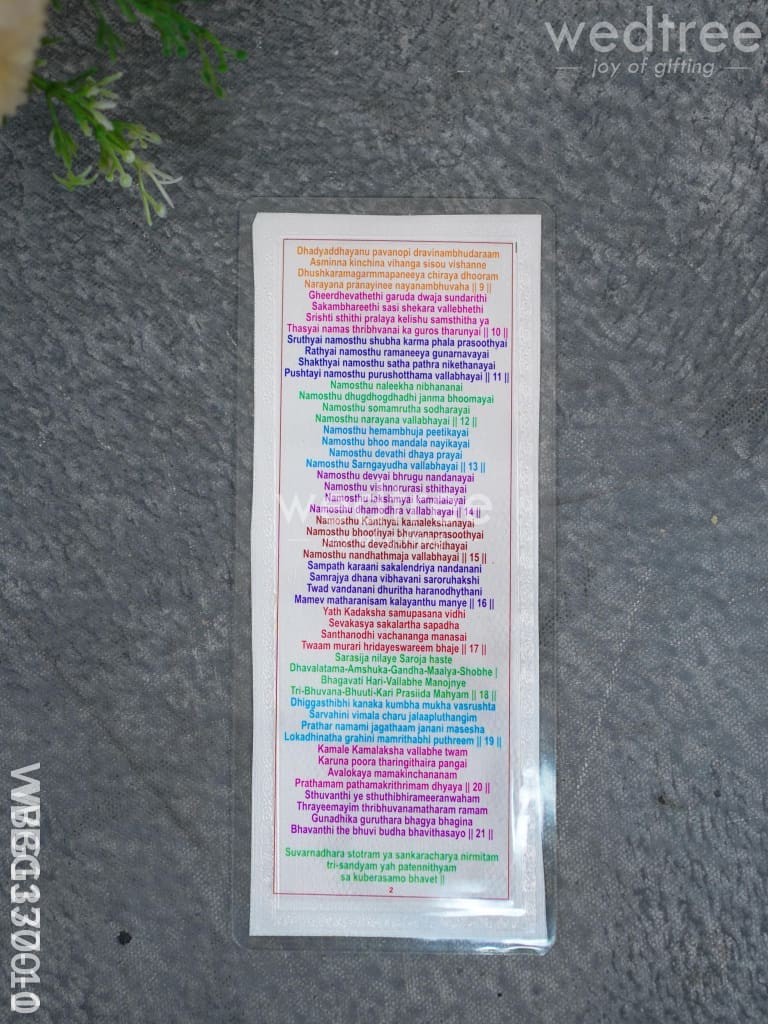 wedtree
joy of gifting
Dhadyaddhayanu pavanopi dravinambhudaraam
Asminna kinchina vihanga sisou vishanne
Dhushkaramagarmmapaneeya chiraya dhooram
Narayana pranayinee nayanambhuvaha || 9 ||
Gheerdhevathethi garuda dwaja sundarithi
Sakambhareethi sasi shekara vallebhethi
Srishti sthithi pralaya kelishu samsthitha ya
Thasyai namas thribhvanai ka guros tharunyai || 10 ||
Sruthyai namosthu shubha karma phala prasoothyai
Rathyai namosthu ramaneeya gunarnavayai
Shakthyai namosthu satha pathra nikethanayai
Pushtayi namosthu purushotthama vallabhayai || 11 ||
Namosthu naleekha nibhananai
Namosthu dhugdhogdhadhi janma bhoomayai
Namosthu somamrutha sodharayai
Namosthu narayana vallabhayai || 12 ||
Namosthu hemambhuja peetikayai
Namosthu bhoo mandala nayikayai
Namosthu devathi dhaya prayai
Namosthu Sarngayudha vallabhayai || 13 ||
Namosthu devyai bhrugu nandanayai
Namosthu vishnorurasi sthithayai
Namosthu lakshmyai kamalalayai
Namosthu dhamodhra vallabhayai || 14 ||
Namosthu Kanthyai kamalekshanayai
Namosthu bhoothyai bhuvanaprasoothyai
Namosthu devadhibhir archithayai
Namosthu nandhathmaja vallabhayai || 15 ||
Sampath karaani sakalendriya nandanani
Samrajya dhana vibhavani saroruhakshi
Twad vandanani dhuritha haranodhythani
Mamev matharanisam kalayanthu manye || 16 ||
Yath Kadaksha samupasana vidhi
Sevakasya sakalartha sapadha
Santhanodhi vachananga manasai
Twaam murari hridayeswareem bhaje || 17 ||
Sarasija nilaye Saroja haste
Dhavalatama-Amshuka-Gandha-Maalya-Shobhe |
Bhagavati Hari-Vallabhe Manojnye
Tri-Bhuvana-Bhuuti-Kari Prasiida Mahyam || 18 ||
Dhiggasthibhi kanaka kumbha mukha vasrushta
Sarvahini vimala charu jalaapluthangim
Prathar namami jagathaam janani masesha
Lokadhinatha grahini mamrithabhi puthreem || 19 ||
Kamale Kamalaksha vallabhe twam
Karuna poora tharingithaira pangai
Avalokaya mamakinchananam
Prathamam pathamakrithrimam dhyaya || 20 ||
Sthuvanthi ye sthuthibhirameeranwaham
Thrayeemayim thribhuvanamatharam ramam
Gunadhika guruthara bhagya bhagina
Bhavanthi the bhuvi budha bhavithasayo || 21 ||
Suvarnadhara stotram ya sankaracharya nirmitam
tri-sandyam yah patennithyam
sa kuberasamo bhavet ||
2
wedtree
WBBG330010